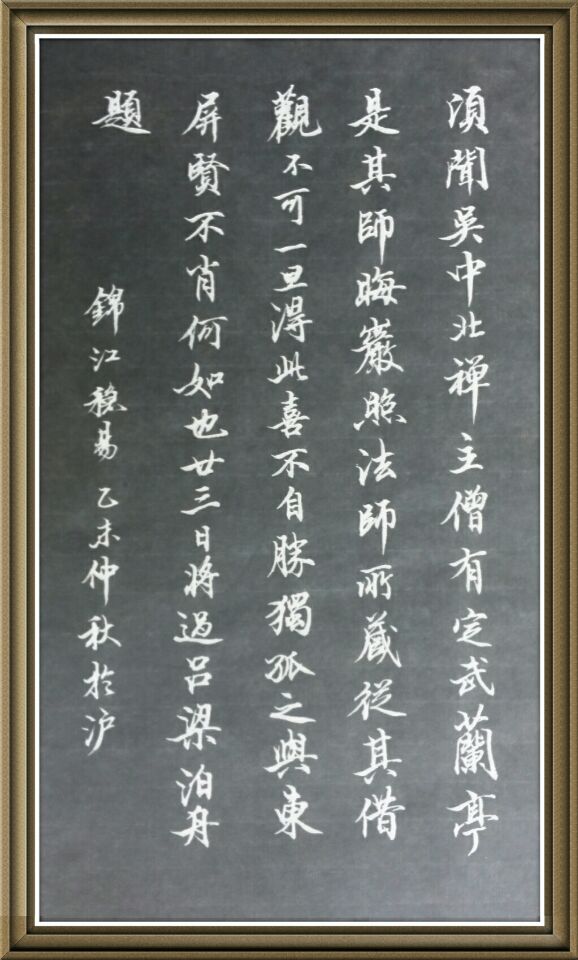 湏聞吳中北禅主僧有定武蘭亭
是其師晦巖照法師所藏從其借
觀不可一旦得此喜不自勝獨孤之與東
屏賢不肖何如也廿三日將過呂梁泊舟
題
錦江穏易乙未仲秋於沪